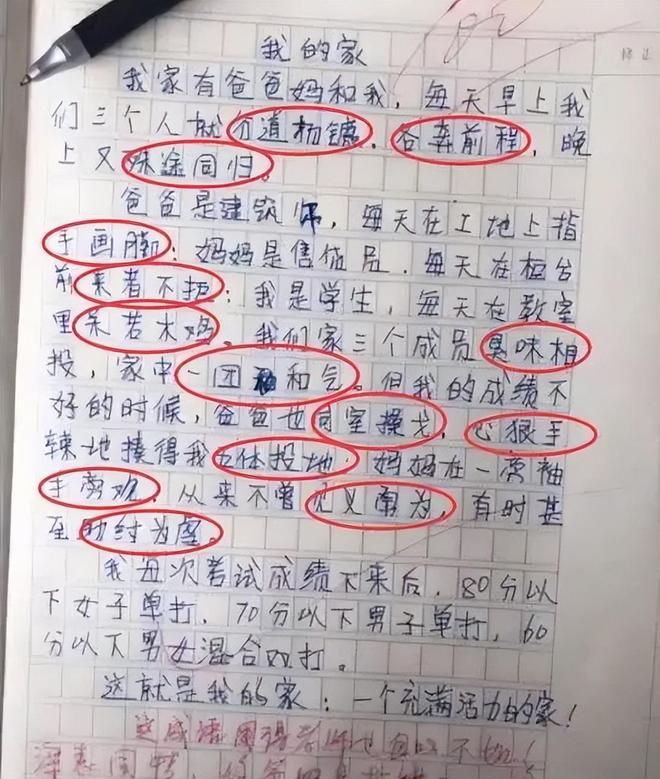 我的家
我家有爸爸妈和我，每天早上我
们三个人就分道杨镳，各奔前程，晚
上又殊途同归。
爸爸是建筑师，每天在工地上指
手画脚；妈妈是售货员，每天在柜台
前来者不拒；我是学生，每天在教室
里呆若木鸡。我们家三个成员臭味相
投，家中一团和气。但我的成绩不
好的时候，爸爸也同室操戈，心狠手
辣地揍得我五体投地；妈妈在一旁袖
手旁观，从来不曾见义勇为，有时甚
至助纣为虐。
我每次考试成绩下来后，80分以
下女子单打，70分以下男子单打，60
分以下男女混合双打。
这就是我的家：一个充满活力的家！
这成语用得老师也自叹不如！
深表同情，